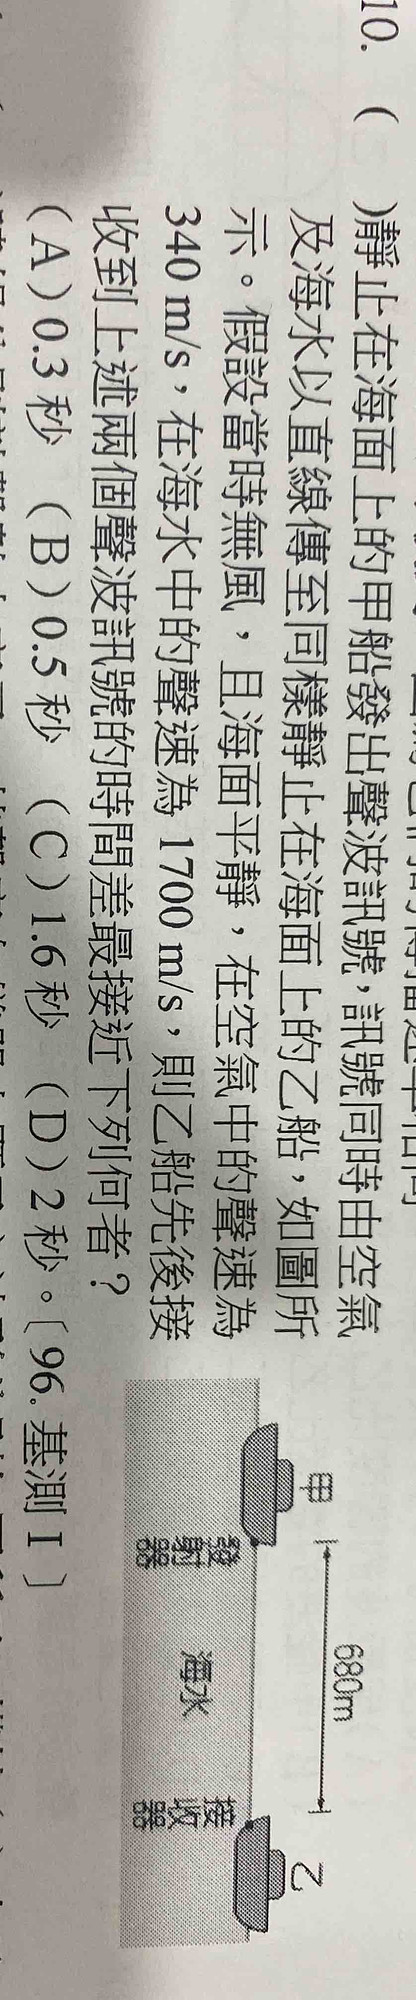 10. (　)靜止在海面上的甲船發出聲波訊號，訊號同時由空氣
及海水以直線傳至同樣靜止在海面上的乙船，如圖所
示。假設當時無風，且海面平靜，在空氣中的聲速為
340 m/s，在海水中的聲速為 1700 m/s，則乙船先後接
收到上述兩個聲波訊號的時間差最接近下列何者？
(A) 0.3 秒　(B) 0.5 秒　(C) 1.6 秒　(D) 2 秒。〔96. 基測 I〕
甲
680m
乙
發射器
海水
接收器